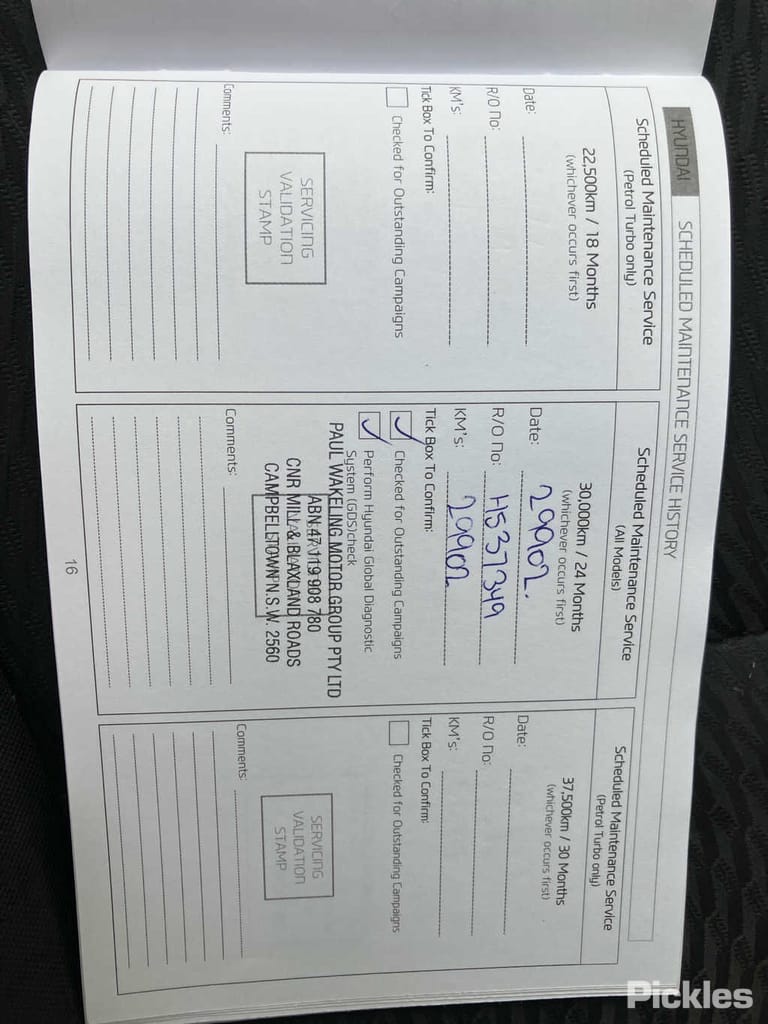 HYUNDAI SCHEDULED MAINTENANCE SERVICE HISTORY
Scheduled Maintenance Service
(Petrol Turbo only)
22,500km / 18 Months
(whichever occurs first)
Date:
R/O No:
KM's:
Tick Box To Confirm:
Checked for Outstanding Campaigns
SERVICING
VALIDATION
STAMP
Comments:
Scheduled Maintenance Service
(All Models)
30,000km / 24 Months
(whichever occurs first)
Date: 29902.
R/O No: H537349
KM's: 29902
Tick Box To Confirm:
Checked for Outstanding Campaigns
Perform Hyundai Global Diagnostic
System (GDS)check
PAUL WAKELING MOTOR GROUP PTY LTD
ABN 47 119 908 780
CNR MILL & BLAXLAND ROADS
CAMPBELLTOWN N.S.W. 2560
Comments:
Scheduled Maintenance Service
(Petrol Turbo only)
37,500km / 30 Months
(whichever occurs first)
Date:
R/O No:
KM's:
Tick Box To Confirm:
Checked for Outstanding Campaigns
SERVICING
VALIDATION
STAMP
Comments:
16
Pickles